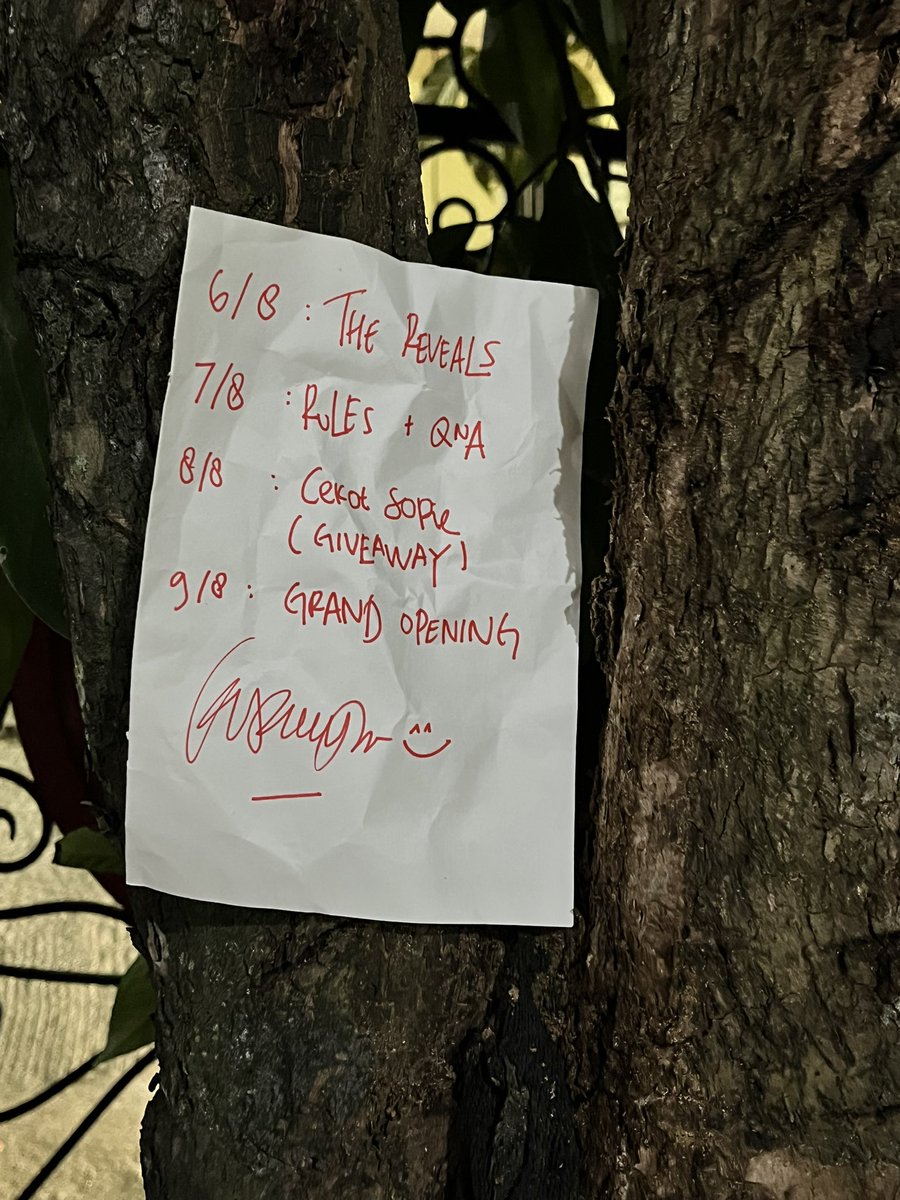 6/8 : THE REVEALS
7/8 : RULES + QNA
8/8 : Cekot Sopie
(GIVEAWAY)
9/8 : GRAND OPENING